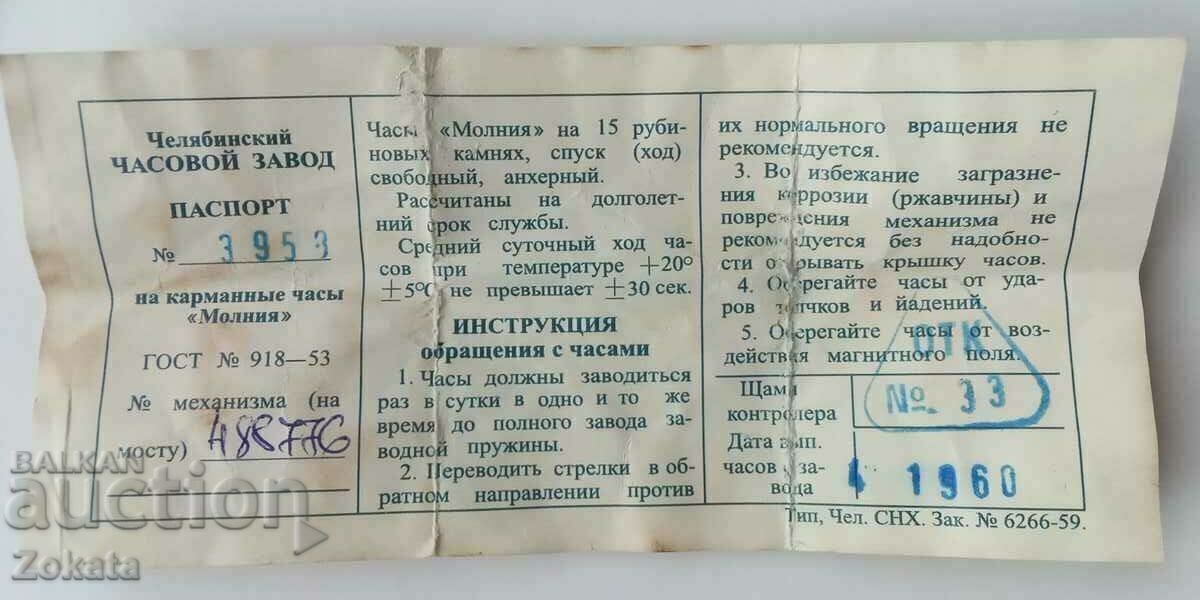 Челябинский
ЧАСОВОЙ ЗАВОД
ПАСПОРТ
№ 3953
на карманные часы
«Молния»
ГОСТ № 918—53
№ механизма (на
мосту) 488776
Часы «Молния» на 15 руби-
новых камнях, спуск (ход)
свободный, анхерный.
Рассчитаны на долголет-
ний срок службы.
Средний суточный ход ча-
сов при температуре +20°
±5°C не превышает ±30 сек.
ИНСТРУКЦИЯ
обращения с часами
1. Часы должны заводиться
раз в сутки в одно и то же
время до полного завода за-
водной пружины.
2. Переводить стрелки в об-
ратном направлении против
их нормального вращения не
рекомендуется.
3. Во избежание загрязне-
ния коррозии (ржавчины) и
повреждения механизма не
рекомендуется без надобно-
сти открывать крышку часов.
4. Оберегайте часы от уда-
ров толчков и йадений.
5. Оберегайте часы от воз-
действия магнитного поля.
Щамп
контролера
ОТК
№ 33
Дата вып.
часов за-
вода
1960
Тип, Чел. СНХ. Зак. № 6266-59.
BALKAN
auction
Zokata